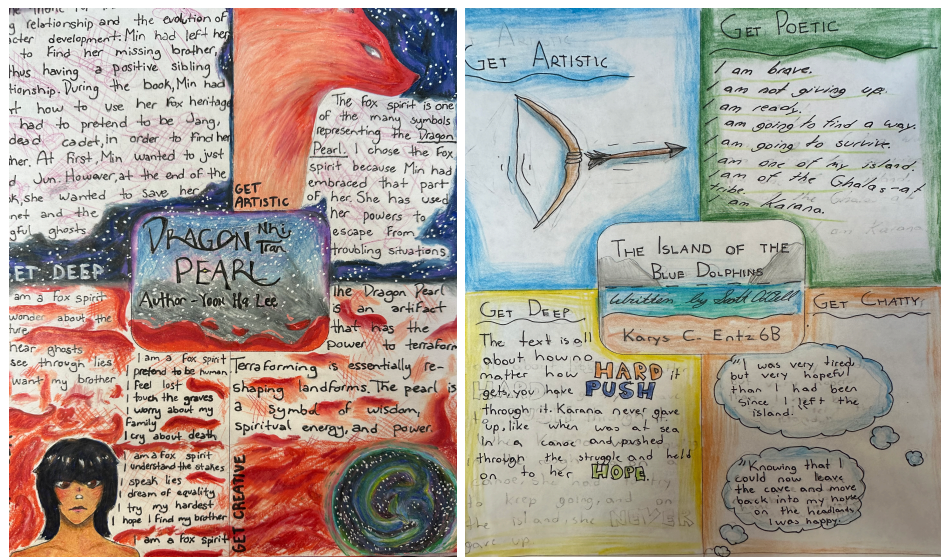 relationship and the evolution of
development: Min had left her
to find her missing brother,
thus having a positive sibling
During the book, Min had
how to use her Fox heritage
had to pretend to be Jang,
dead cadet, in order to find her
At first, Min wanted to just
Jun. However, at the end of the
she wanted to save her
and the
ghosts.
GET DEEP
GET
ARTISTIC
The Fox spirit is one
of the many symbols
representing the Dragon
Pearl. I chose the Fox
spirit because Min had
embraced that part
of her. She has used
her powers to
escape from
troubling situations.
DRAGON
PEARL
Nhi
Tran
Author - Yoon Ha Lee
am a Fox spirit
wonder about the
near ghosts
see through lies
want my brother
I am a Fox spirit
I pretend to be human
I feel lost
I touch the graves
I worry about my
Family
I cry about death
I am a Fox spirit
I understand the stakes
I speak lies
I dream of equality
I try my hardest
I hope I find my brother
I am a Fox spirit
The Dragon Pearl
is an artifact
that has the
power to terraform
Terraforming is essentially re-
shaping landforms. The pearl is
a symbol of wisdom,
spiritual energy, and power.
GET CREATIVE
GET ARTISTIC
GET POETIC
I am brave.
I am not giving up.
I am ready.
I am going to find a way.
I am going to survive.
I am one of my island.
I am of the Ghalas-at
tribe.
I am Karana.
THE ISLAND OF THE
BLUE DOLPHINS
Written by Scott O'Dell
Karys C. Entz 6B
GET DEEP
The text is all
about how no
matter how HARD it
gets, you have PUSH
through it. Karana never gave
up, like when was at sea
in a canoe and pushed
through the struggle and held
on to her HOPE.
to keep going, and on
the island, she NEVER
gave up.
GET CHATTY
"I was very tired,
but very hopeful
than I had been
since I left the
island."
"Knowing that I
could now leave
the cave and move
back into my home
on the headland,
I was happy."